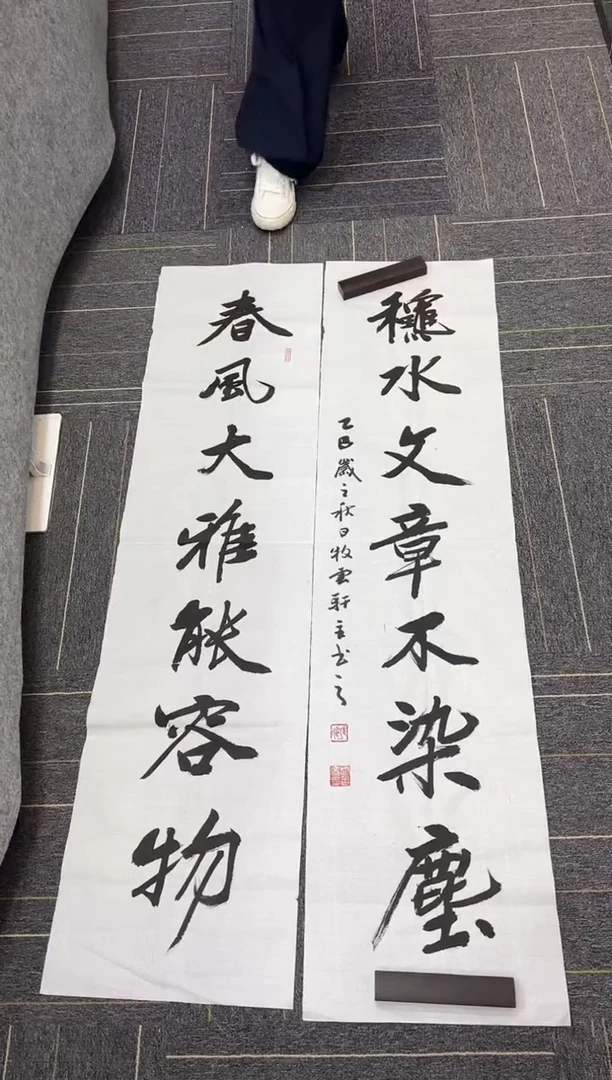 春風大雅能容物
龝水文章不染塵
乙巳歲之秋日牧雲軒主书之